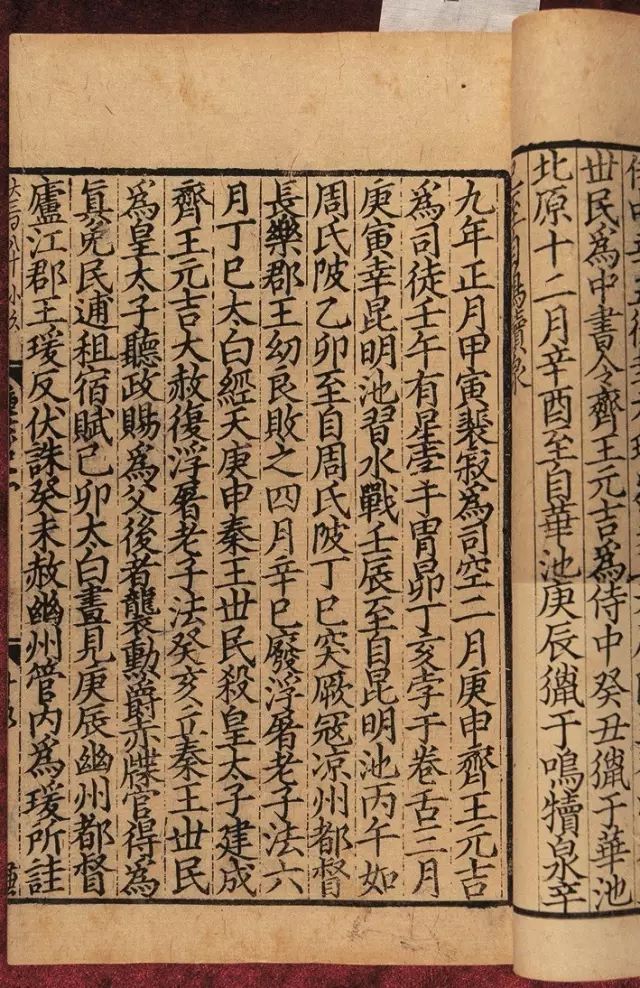 世民爲中書令齊王元吉爲侍中癸丑獵于華池
北原十二月辛酉至自華池庚辰獵于鳴犢泉辛
九年正月甲寅裴寂爲司空二月庚申齊王元吉
爲司徒壬午有星孛于胃昴丁亥孛于卷舌三月
庚寅幸昆明池習水戰壬辰至自昆明池丙午如
周氏陂乙卯至自周氏陂丁巳突厥寇凉州都督
長樂郡王幼良敗之四月辛巳廢浮屠老子法六
月丁巳太白經天庚申秦王世民殺皇太子建成
齊王元吉大赦復浮屠老子法癸亥立秦王世民
爲皇太子聽政賜爲父後者襲勳爵赤牒官得爲
真免民逋租宿賦己卯太白晝見庚辰幽州都督
廬江郡王瑗反伏誅癸未赦幽州管内爲瑗所詿